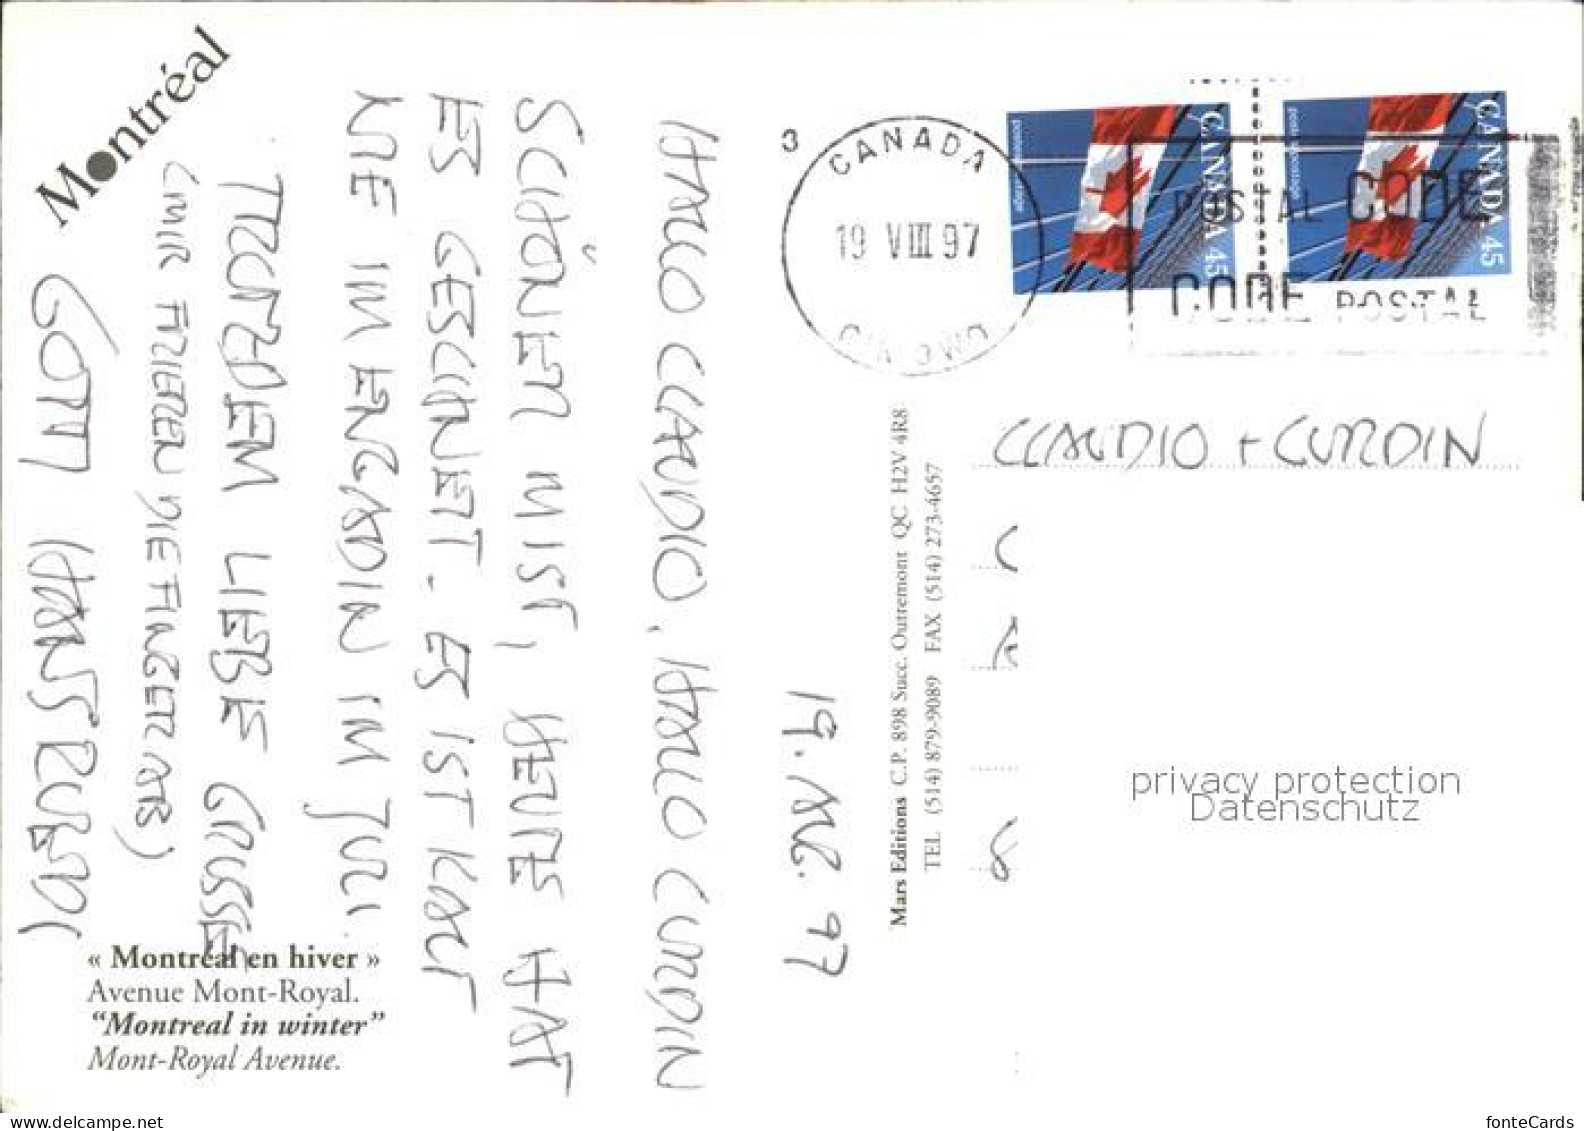 Montréal
19. AUG. 97
HALLO CLAUDIO, HALLO CURDIN
SCHÖNER MIST, HEUTE HAT
ES GEREGNET. ES IST KALT
WIE IM ENGADIN IM JULI.
TROTZDEM LIEBE GRÜSSE
(MIR FRIEREN DIE FINGER AB)
GÖTTI HANSRUEDI
« Montréal en hiver »
Avenue Mont-Royal.
“Montreal in winter”
Mont-Royal Avenue.
Mars Editions C.P. 898 Succ. Outremont QC H2V 4R8
TEL (514) 879-9089 FAX (514) 273-4657
3
CANADA
19 VIII 97
CANADA 45
postes postage
CANADA 45
postes postage
POSTAL CODE
CODE POSTAL
CLAUDIO + CURDIN
privacy protection
Datenschutz
www.delcampe.net
fonteCards